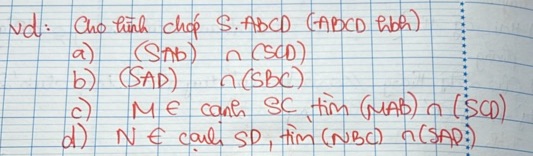 vd: Cho hình chóp S.ABCD (ABCD hbh)
a) (SAb) ∩ (SCD)
b) (SAD) ∩ (SBC)
c) M ∈ cạnh SC, tìm (MAB) ∩ (SCD)
d) N ∈ cạnh SD, tìm (NBC) ∩ (SAD)